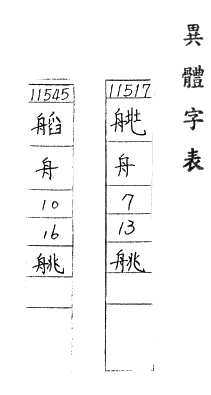 異體字表
11517
舟
7
13
䑬
11545
舟
10
16
䑬